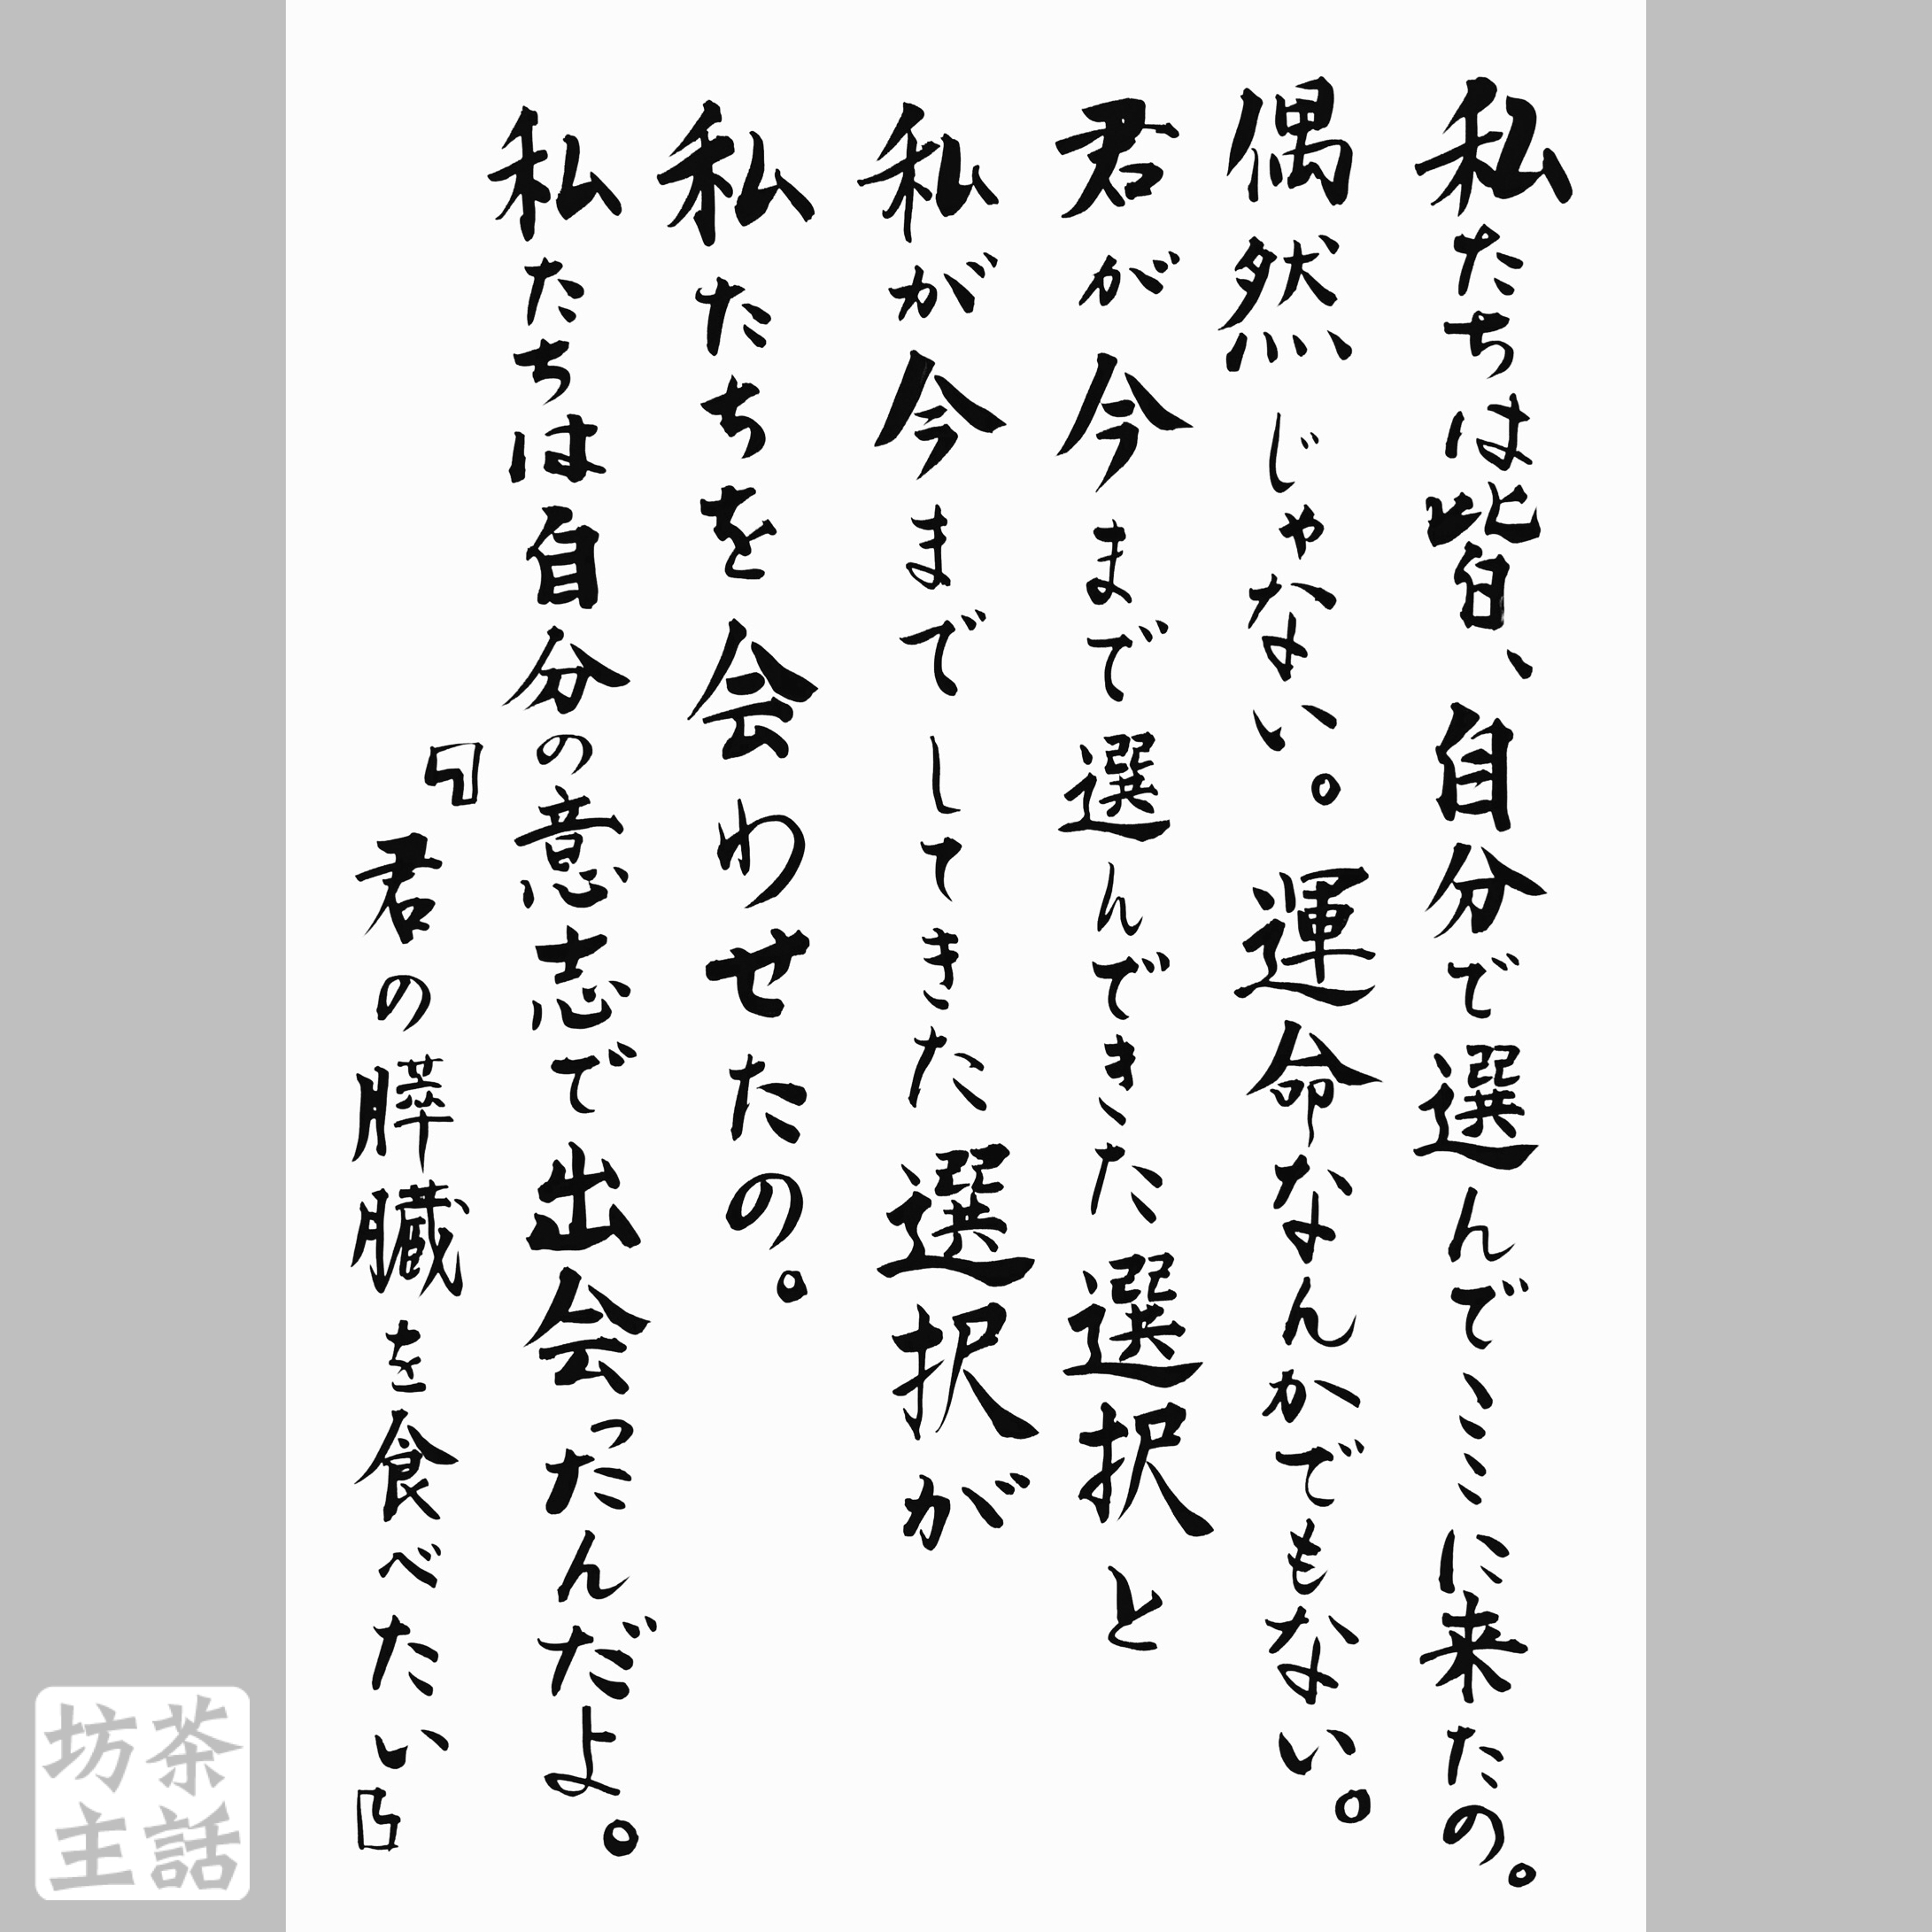 私たちは皆、自分で選んで……に来たの。
偶然じゃない。運命なんかでもない。
君が今まで選んできた選択と
私が今までしてきた選択が
私たちを会わせたの。
私たちは自分の意志で出会ったんだよ。
『君の膵臓を食べたい』
茶話
坊主